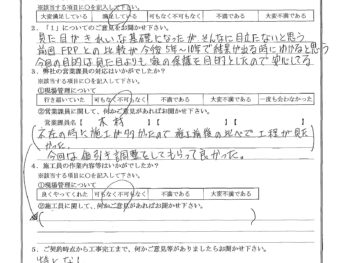 ※該当する項目に○を記入して下さい。
大変満足している 満足している 可もなく不可もなく 大変不満である
2．「１」についてのご意見をお聞かせ下さい。
見た目がきれいな基礎になったが、そんなに目立たないと思う
前回FRPとの比較が今後5年〜10年で結果が出る時にわかると思う
今回の目的は見た目よりも家の保護を目的としたので安心してる
3．弊社の営業課員の対応はいかがでしたか？
※該当する項目に○を記入して下さい。
①現場管理について
行き届いていた 可もなく不可もなく 不満である 大変不満である 一度も会わなかった
②営業課員に関して、何かご意見があればお聞かせ下さい。
営業課員名【 木村
不在の時に施工が多かったので 施工前後の
工程が見たかった。
今回は値引き調整をしてもらって良かった。
4．施工員の作業内容等はいかがでしたか？
※該当する項目に○を記入して下さい。
①現場管理について
良くやってくれた 可もなく不可もなく 不満である 大変不満である
②施工員に関して、何かご意見があればお聞かせ下さい。
5．ご契約時点から工事完工まで、何かご意見等がありましたらお聞かせ下さい。
特になし